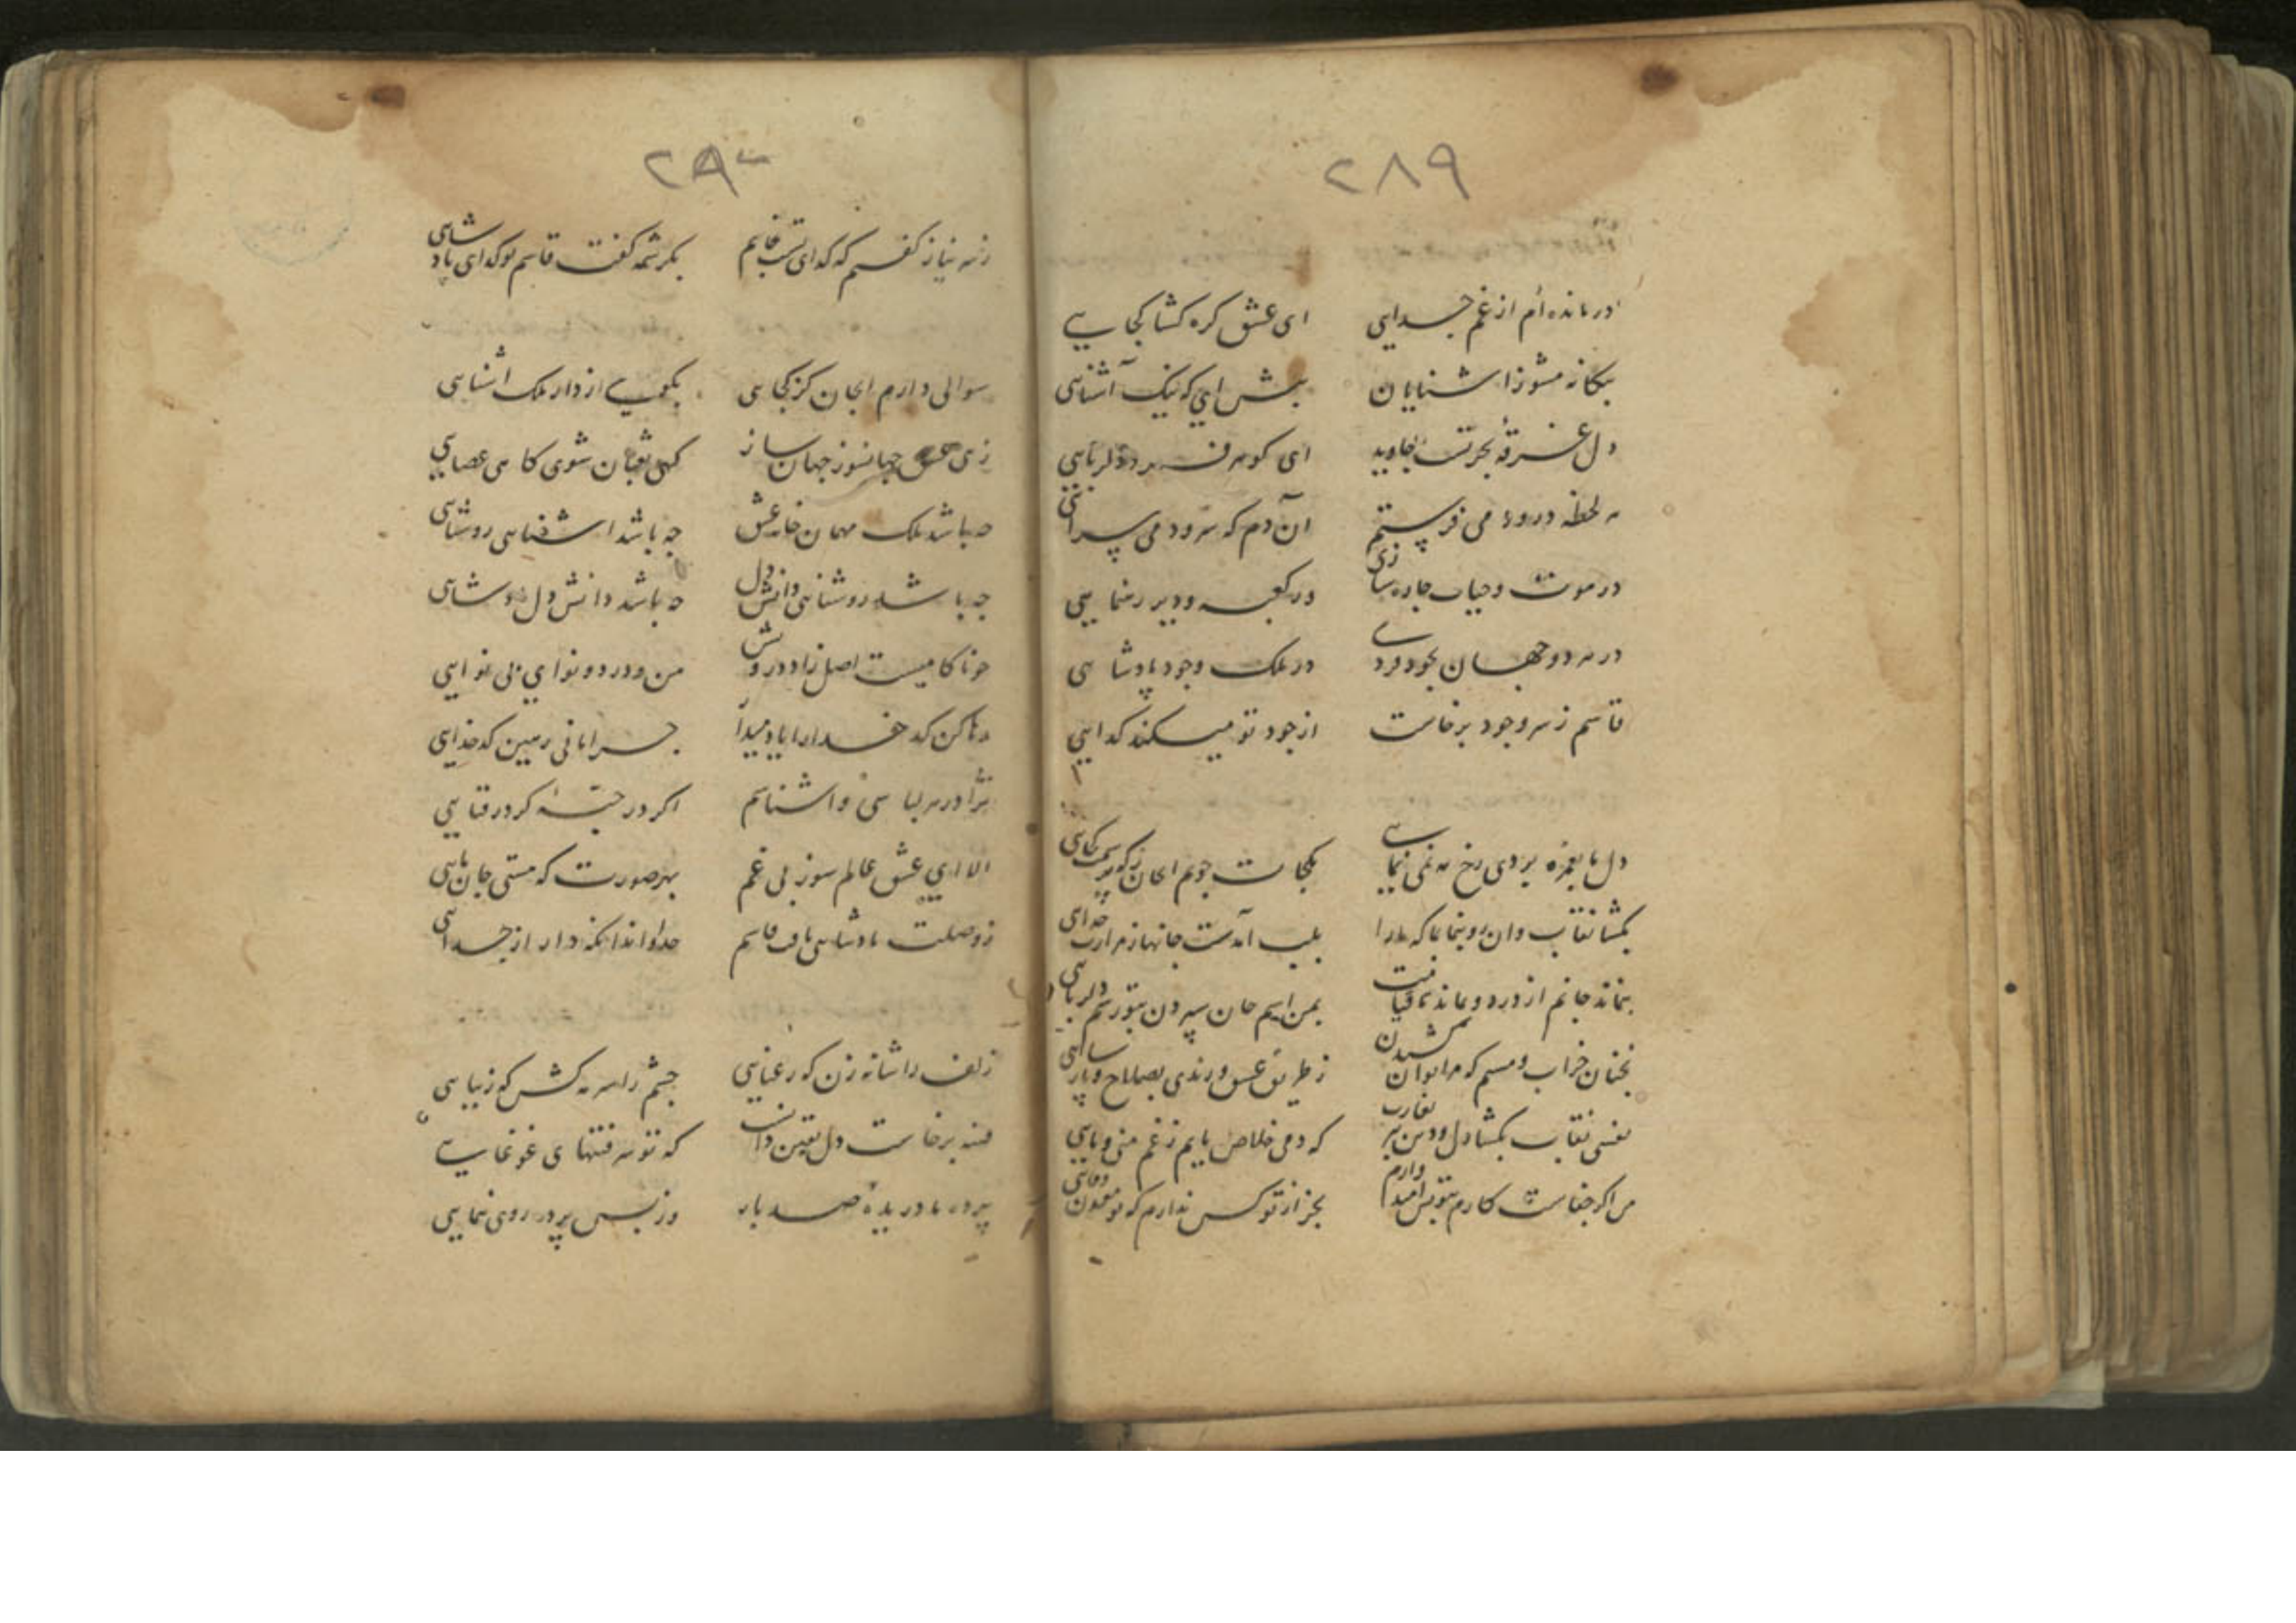 ۲۸۹
درمانده‌ام از غم جدایی ای عشق کره کشا کجایی
بیکانه مشو ز اشنایان پیش ای که نیک آشنایی
دل غرقهٔ بحر تست جاوید ای کوهر فرد دلربایی
هر لحظه درود می فرستم آن دم که سرود می سرایی
در موت و حیات چاره سازی در کعبه و دیر رهنمایی
در هر دو جهان بجود فردی در ملک وجود پادشاهی
قاسم ز سر وجود برخاست از جود تو میکند کدایی
دل ما بغمزه بردی رخ مه نمی نمایی بکجات جویم ای جان ز که پرسمت کجایی
بکشا نقاب وان رو بنما که مر ترا بلب آمدست جانها ز مرارت جدایی
بنماند جانم از درد و نماند تا قیامت
بچنان خراب و مستم که مرا توان کشیدن ز طریق عشق و رندی بصلاح و پارسایی
نفسی نقاب بکشا دل و دین ببر بغارت که دمی خلاص یابم ز غم منی و مایی
من اکر جفاست کارم بتو بس امید دارم بجز از تو کس ندارم که تو معدن وفایی
۲۹۰
ز سر نیاز کفتم که کدای تست قاسم بکرشمه کفت قاسم تو کدای پادشاهی
سوالی دارم ای جان کز کجایی بکفت از دار ملک اشنایی
زهی عشق جهانسوز جهان ساز کهی ثعبان شوی کاهی عصایی
چه باشد ملک مهمان خانه عشق چه باشد اشنایی روشنایی
چه باشد روشنایی دانش دل چه باشد دانش دل
چو ناکامیست اصل زاد درویش من و درد و نوای بی نوایی
رها کن کدخدا را
ترا در هر لباسی واشناسم اکر در جبهٔ کر در قبایی
الا ای عشق عالم سوز بی غم بهر صورت که هستی جان مایی
ز وصلت پادشاهی یافت قاسم خداوندا نکه دار از جدایی
زلف را شانه زن که رعنایی چشم را سرمه کش که زیبایی
فتنه برخاست دل یقین دانست که تو سر فتنهای غوغایی
پرده ما دریدهٔ صد بار وز پس پرده روی ننمایی